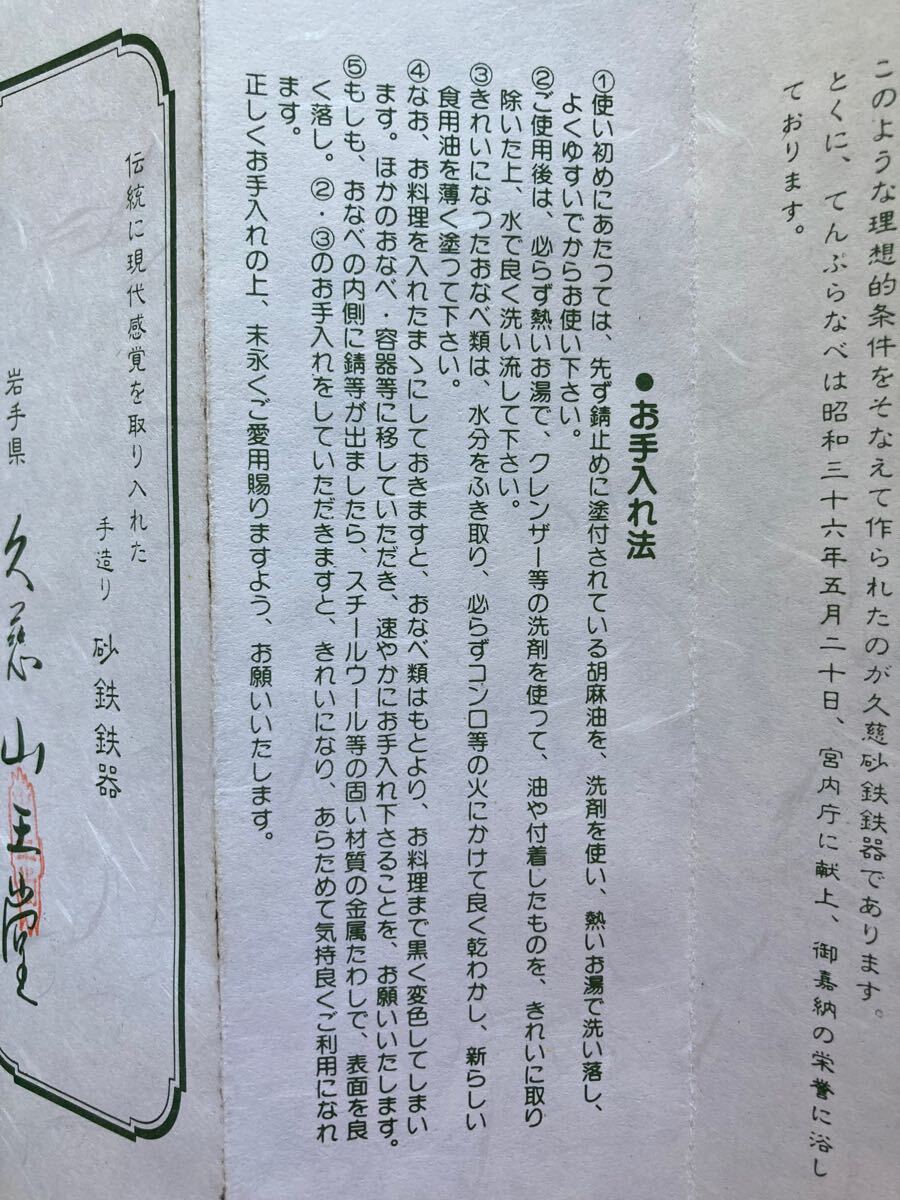 このような理想的条件をそなえて作られたのが久慈砂鉄鉄器であります。
とくに、てんぷらなべは昭和三十六年五月二十日、宮内庁に献上、御嘉納の栄誉に浴し
ております。
●お手入れ法
①使い初めにあたつては、先ず錆止めに塗付されている胡麻油を、洗剤を使い、熱いお湯で洗い落し、
よくゆすいでからお使い下さい。
②ご使用後は、必らず熱いお湯で、クレンザー等の洗剤を使つて、油や付着したものを、きれいに取り
除いた上、水で良く洗い流して下さい。
③きれいになつたおなべ類は、水分をふき取り、必らずコンロ等の火にかけて良く乾わかし、新らしい
食用油を薄く塗つて下さい。
④なお、お料理を入れたまゝにしておきますと、おなべ類はもとより、お料理まで黒く変色してしまい
ます。ほかのおなべ・容器等に移していただき、速やかにお手入れ下さることを、お願いいたします。
⑤もしも、おなべの内側に錆等が出ましたら、スチールウール等の固い材質の金属たわしで、表面を良
く落し。②・③のお手入れをしていただきますと、きれいになり、あらためて気持良くご利用になれ
ます。
正しくお手入れの上、末永くご愛用賜りますよう、お願いいたします。
伝統に現代感覚を取り入れた
手造り 砂鉄鉄器
岩手県 久慈山王堂